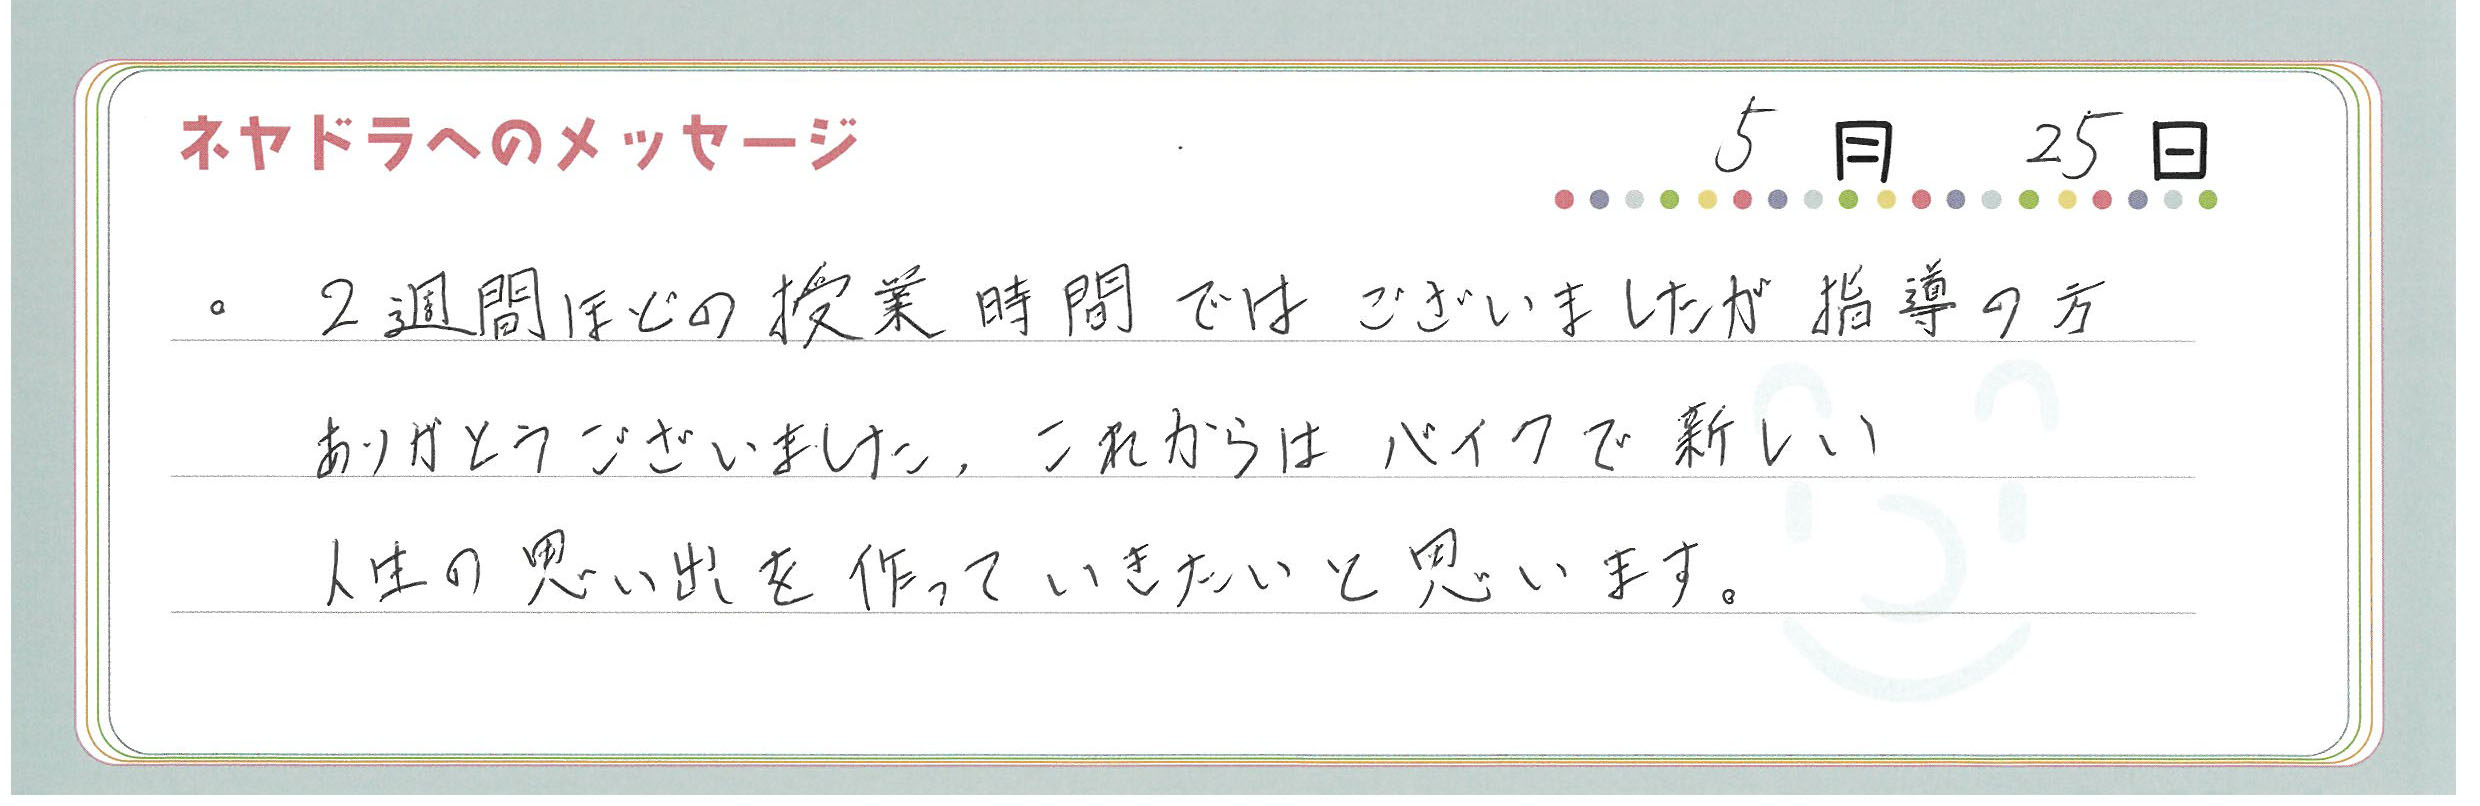 ネヤドラへのメッセージ
5月 25日
。 2週間ほどの授業時間ではございましたが指導の方
ありがとうございました、これからはバイクで新しい
人生の思い出を作っていきたいと思います。